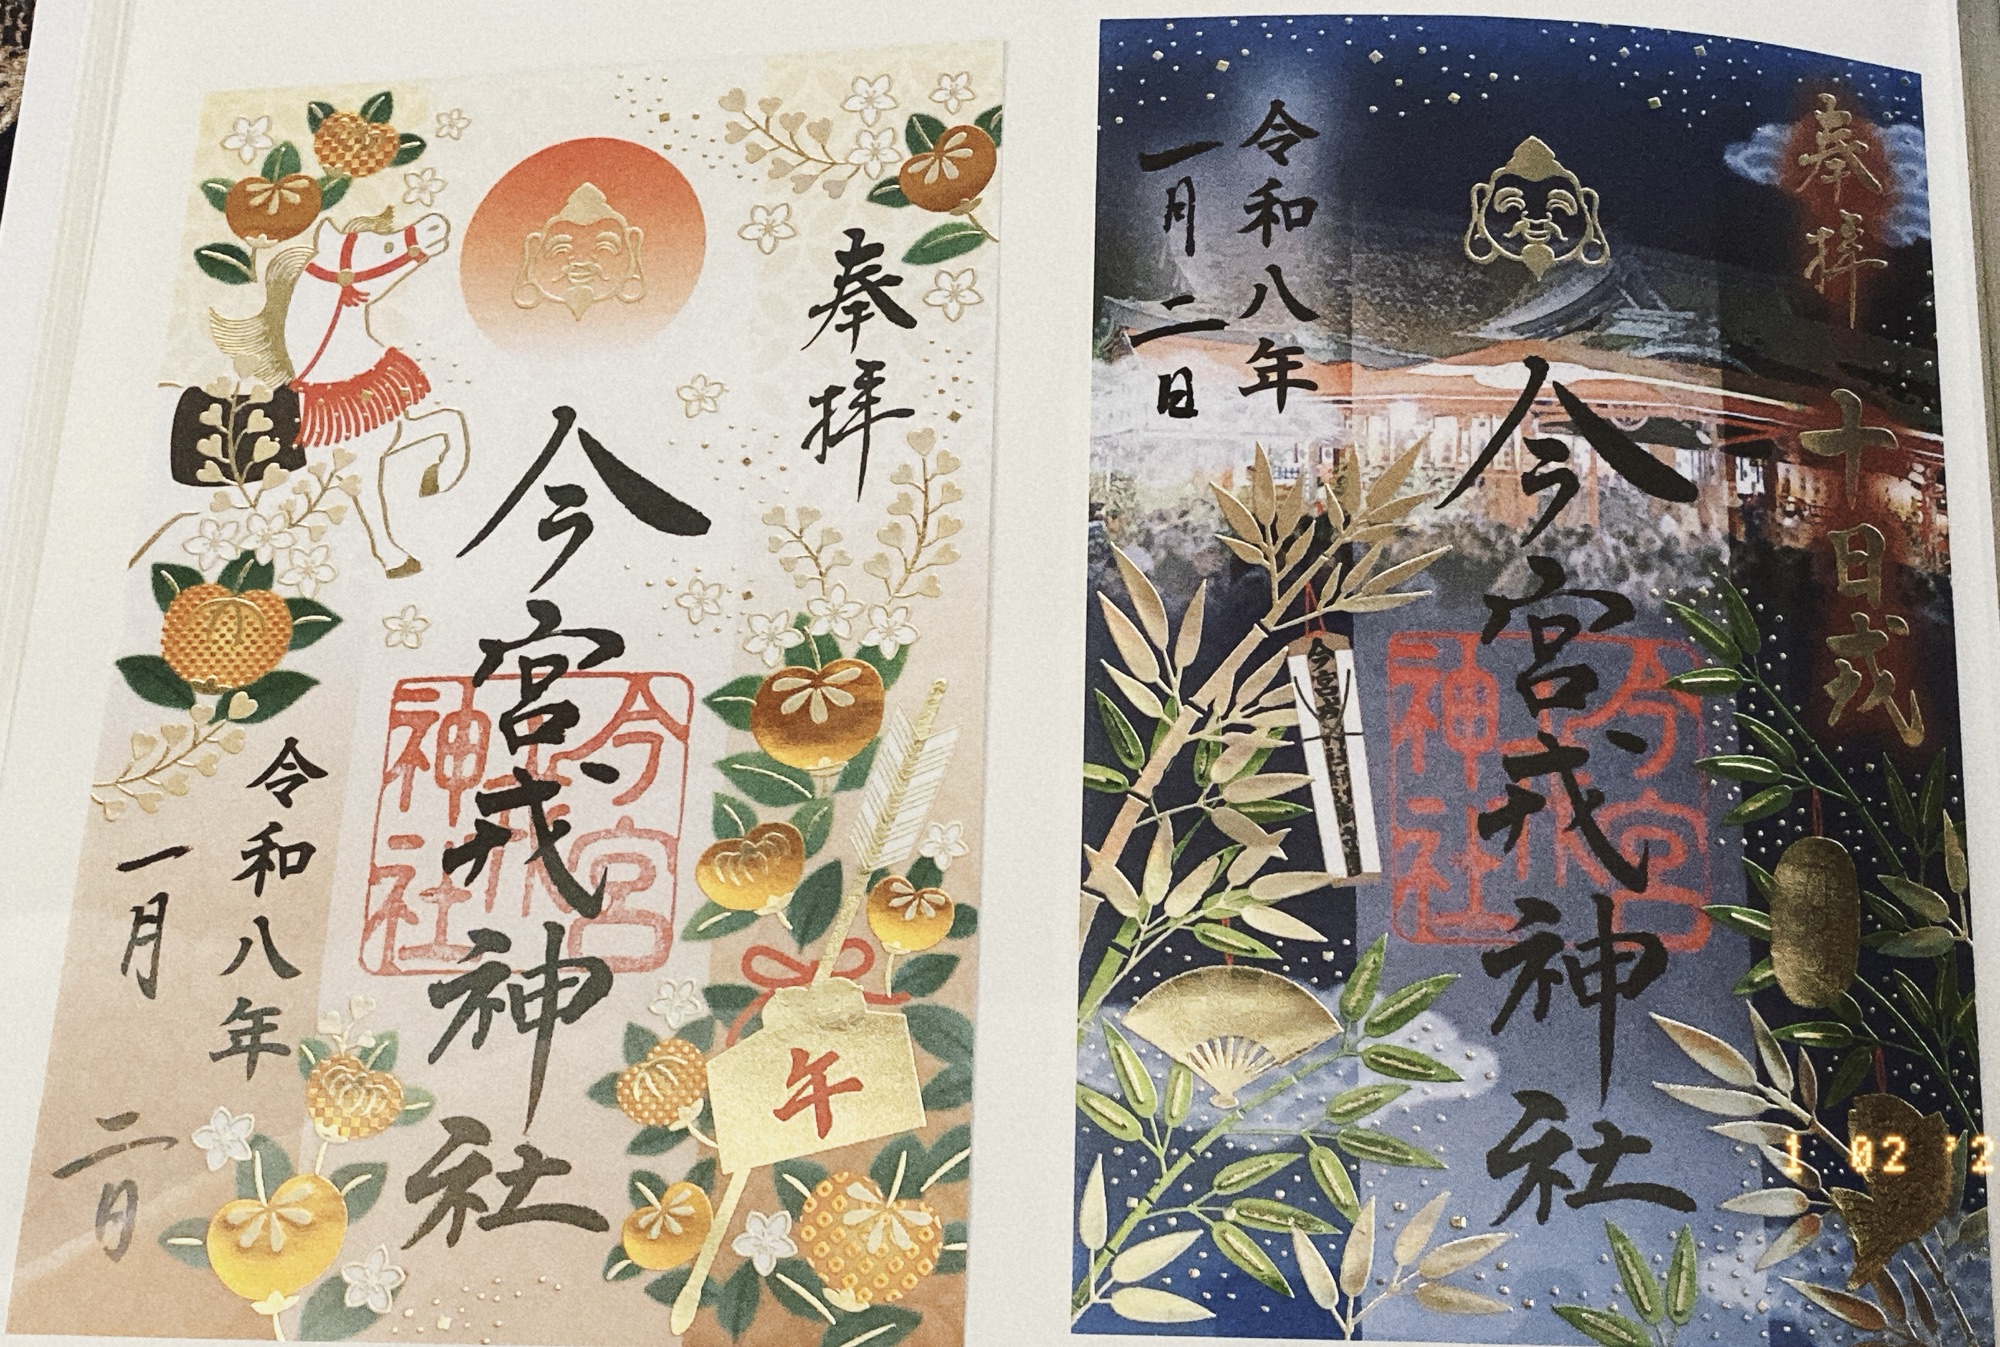 奉拝
今宮戎神社
今宮戎神社
令和八年
一月二日
午
奉拝
十日戎
今宮戎神社
今宮戎神社
令和八年
一月二日
1 02 '2